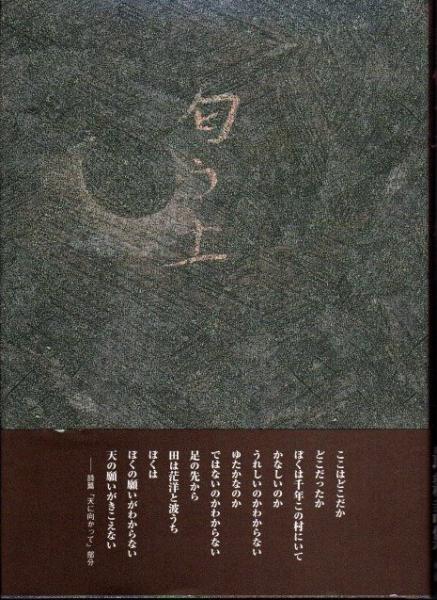 匂う土
ここはどこだか
どこだったか
ぼくは千年この村にいて
かなしいのか
うれしいのかわからない
ゆたかなのか
ではないのかわからない
足の先から
田は茫洋と波うち
ぼくは
ぼくの願いがわからない
天の願いがきこえない
──詩篇「天に向かって」部分